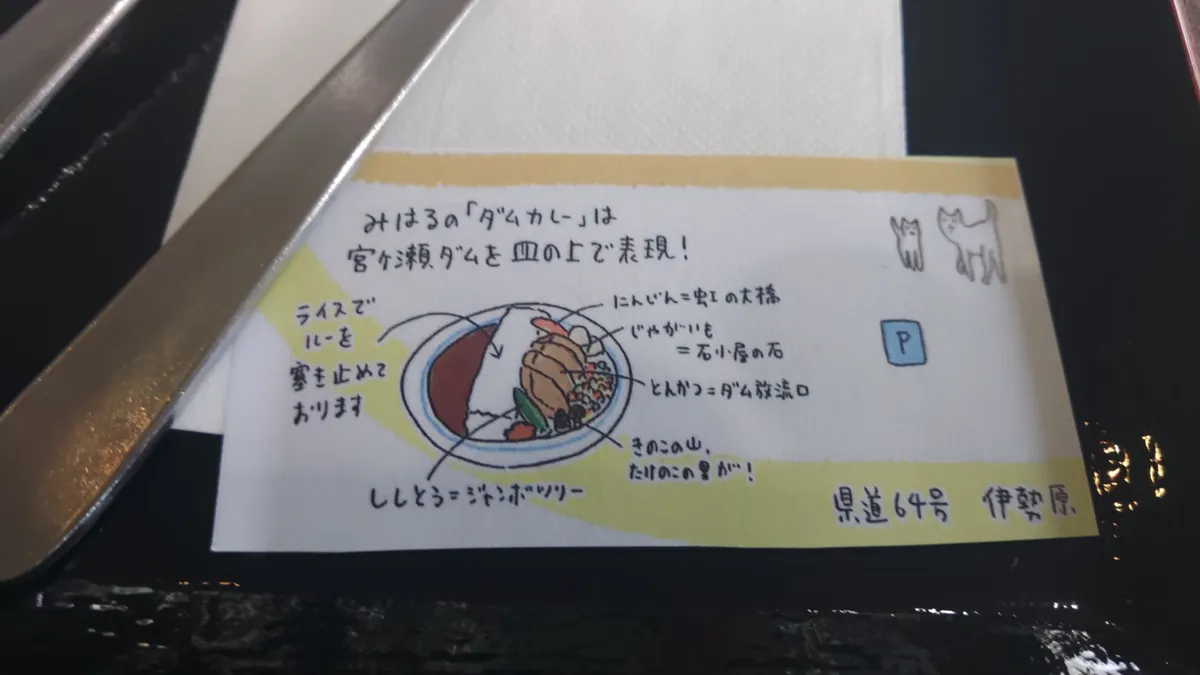 みはるの「ダムカレー」は
宮ケ瀬ダムを皿の上で表現!
ライスで
ルーを
塞き止めて
おります
にんじん=虹の大橋
じゃがいも
=石小屋の石
とんかつ=ダム放流口
きのこの山、
たけのこの里が!
ししとう=ジャンボツリー
P
県道64号 伊勢原